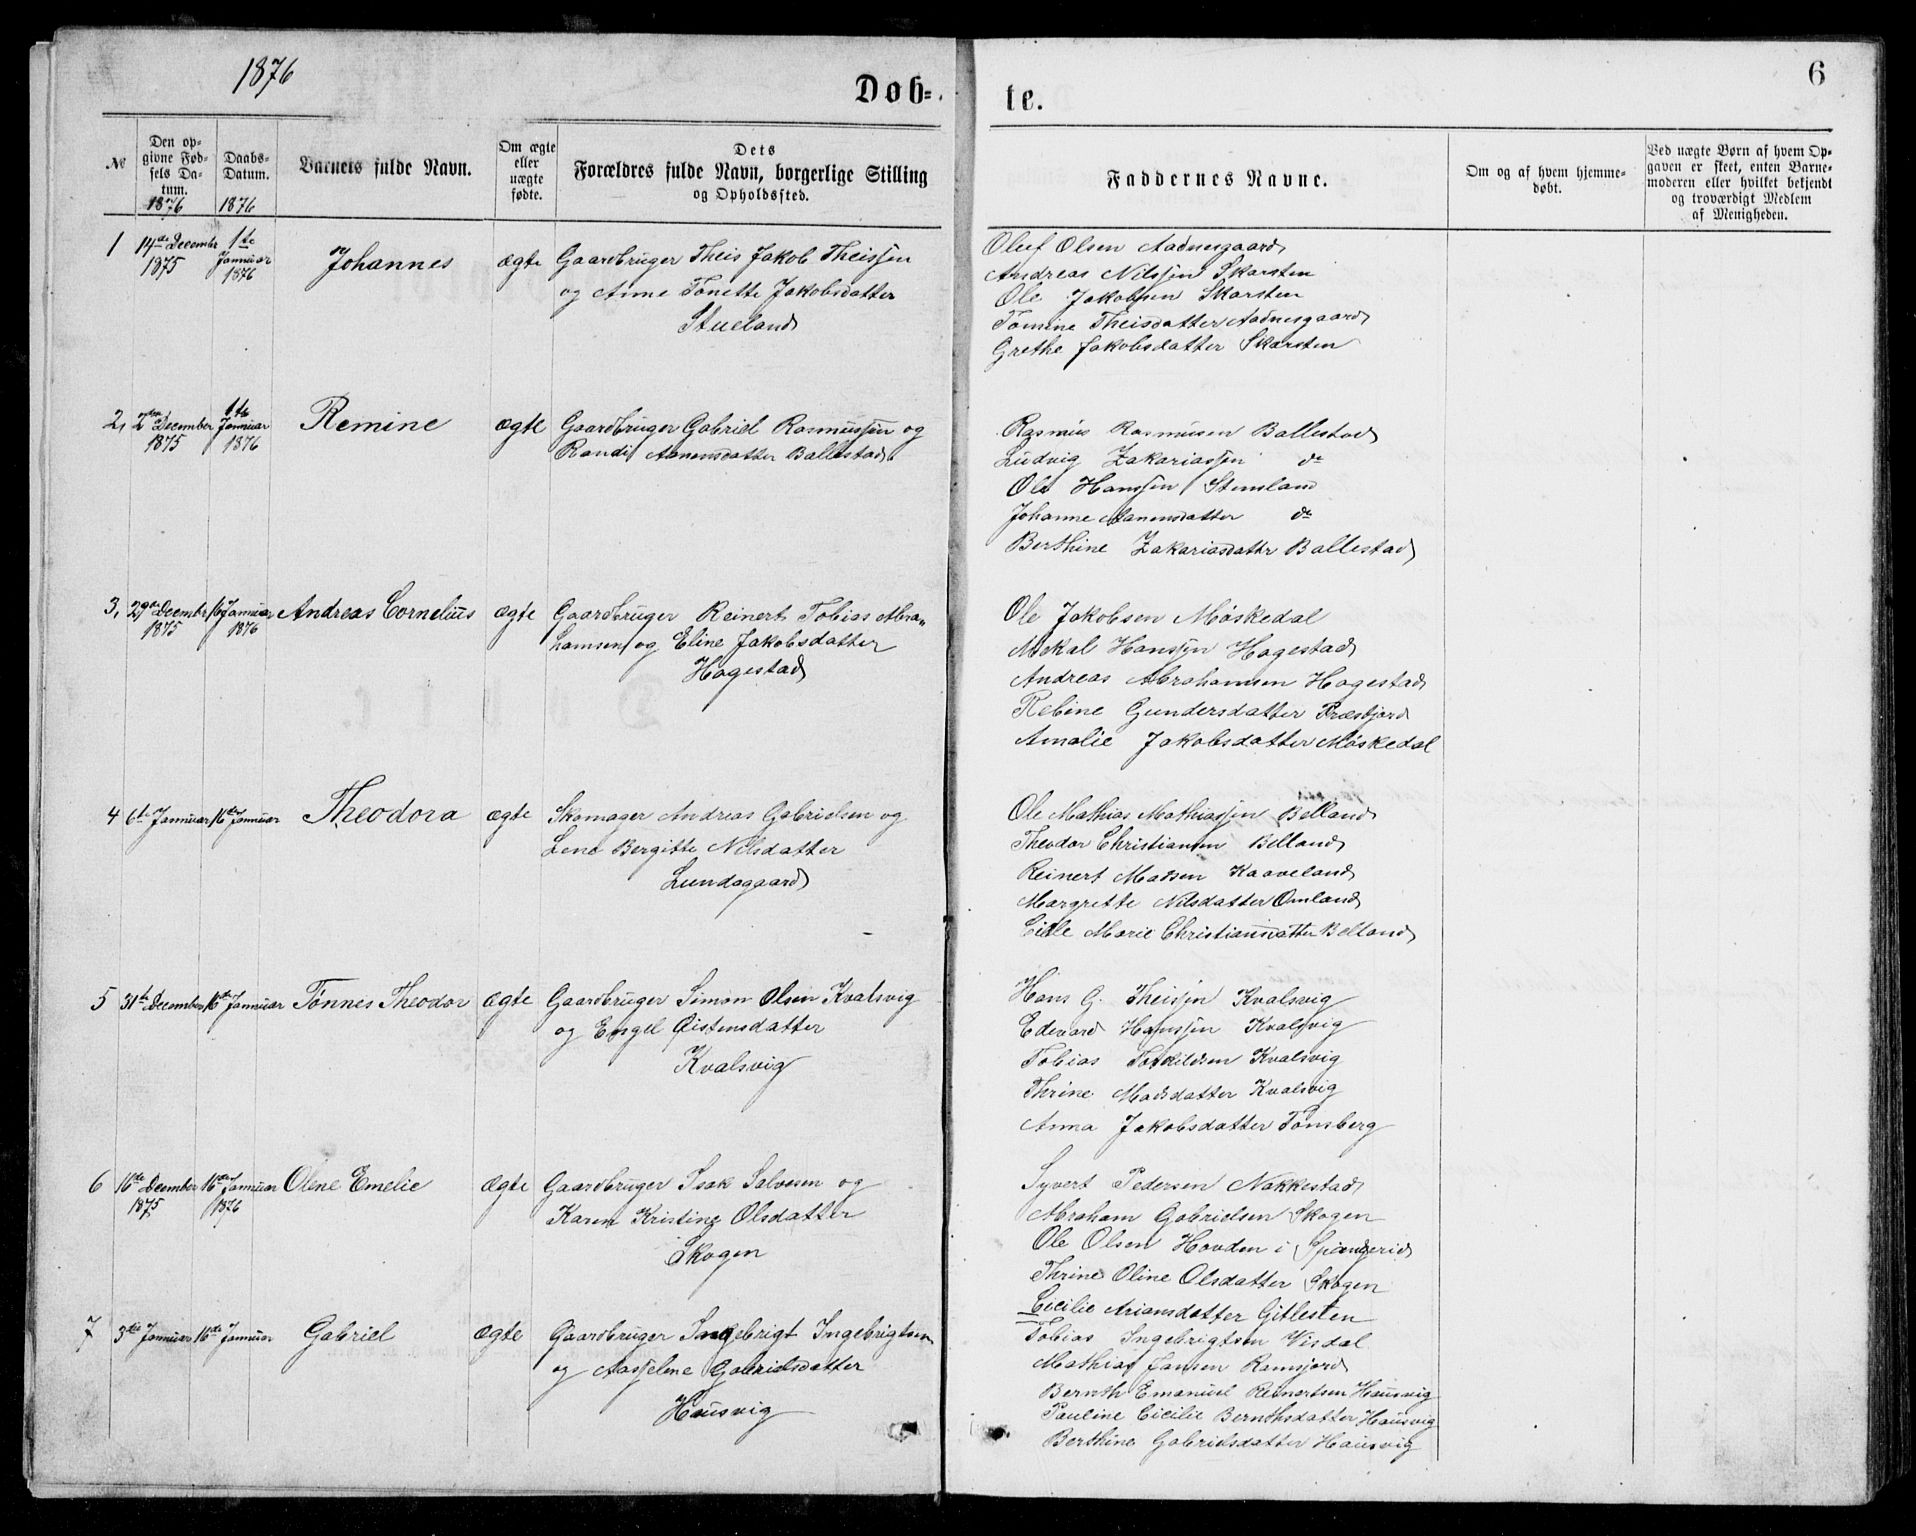 1876
Døb-
te.
6
No
Den op-
givne Fød-
sels Da-
tum.
1876
Daabs-
Datum.
1876
Barnets fulde Navn.
Om ægte
eller
uægte
fødte.
Dets
Forældres fulde Navn, borgerlige Stilling
og Opholdssted.
Faddernes Navne.
Om og af hvem hjemme-
døbt.
Ved uægte Børn af hvem Op-
gaven er skeet, enten Barne-
moderen eller hvilket bekjendt
og troværdigt Medlem
af Menigheden.
1 14de Decembr 1te Johannes ægte Gaardbruger Theis Jakob Theissen
1875 Januar 1876 og Anne Tonette Jakobsdatter
Stueland
Oluf Olsen Aadnesgaard
Andreas Nilssen Skarsten
Ole Jakobsen Skarsten
Tomine Theisdatter Aadnesgaard
Grethe Jakobsdatter Skarsten
2, 2den December 1te Januar Remine ægte Gaardbruger Gabriel Rasmussen og
1875 1876 Randi Aanensdatter Ballestad
Rasmus Rasmusen Ballestad
Ludvig Zakariassen do
Ole Hanssen Stensland
Johanne Aanensdatter do
Berthine Zakariasdattr Ballestad
3, 29de Decembr 16 Januar Andreas Cornelius ægte Gaardbruger Reinert Tobias Abra„
1875 1876 hamsen og Eline Jakobsdatter
Hagestad
Ole Jakobsen Møskedal
Mekal Hanssen Hagestad
Andreas Abrahamsen Hagestad
Rebine Gundersdatter
Amalie Jakobsdatter Møskedal
4 6te Januar 16de Januar Theodora ægte Skomager Andreas Gabrielsen og
Lene Bergitte Nilsdatter
Lundegaard
Ole Mathias Mathiassen Belland
Theodor Christiansen Belland
Reinert Madsen Kaaveland
Margrette Nilsdatter Omland
Marie Christiansdatter Belland
5 31te December 16de Januar Tønnes Theodor ægte Gaardbruger Simon Olsen Kvalsvig
og Engel Øistensdatter
Kvalsvig
Hans G. Theissen Kvalsvig
Edevard Hanssen Kvalsvig
Tobias Torkildsen Kvalsvig
Thrine Madsdatter Kvalsvig
Anna Jakobsdatter Tønsberg
6 16de December 16de Januar Olene Emelie ægte Gaardbruger Isak Salvesen og
1875 1876 Karen Kristine Olsdatter
Skogen
Syvert Pedersen Nakkestad
Abraham Gabrielsen Skogen
Ole Olsen Hovden i Spangerid
Thrine Oline Olsdatter Skogen
Cicilie Ariansdatter Gitlesten
7 3die Januar 16de Januar Gabriel ægte Gaardbruger Ingebrigt Ingebrigtsen
og Aasjelene Gabrielsdatter
Hausvig
Tobias Ingebrigtsen Visdal
Mathias Jansen Ramsjord
Bernth Emanuel Reinertsen Hausvig
Pauline Cicilie Bernthsdatter Hausvig
Berthine Gabrielsdatter Hausvig